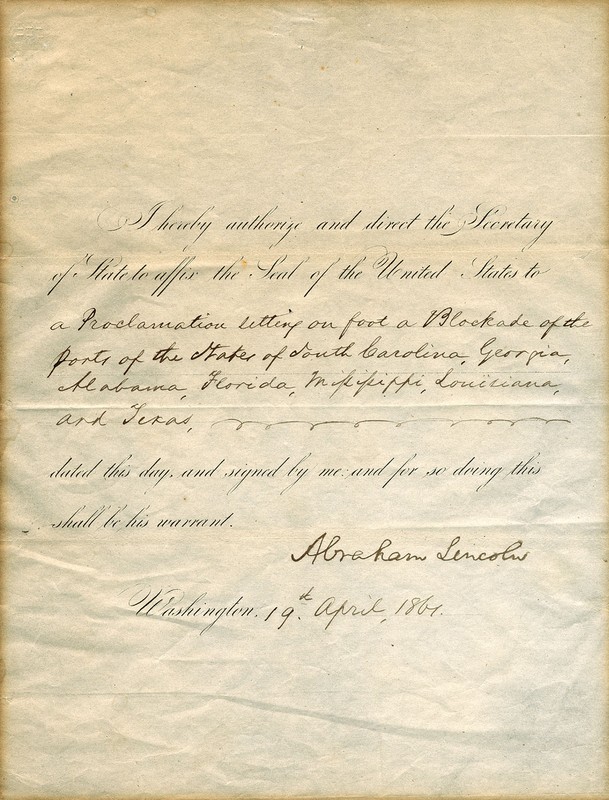 I hereby authorize and direct the Secretary
of State to affix the Seal of the United States to
a Proclamation setting on foot a Blockade of the
Ports of the States of South Carolina, Georgia,
Alabama, Florida, Mississippi, Louisiana,
and Texas,
dated this day, and signed by me: and for so doing this
shall be his warrant.
Abraham Lincoln
Washington, 19th April, 1861.